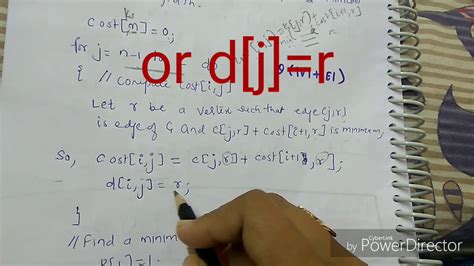 cost[n]=0;
for j= n-1
or d[j]=r
{ // Compute cost[i,j]
Let r be a vertex such that edge (j,r)
is edge of G and c[j,r] + cost[i+1,r] is minimum
So, cost[i,j] = c[j,r] + cost[i+1, r];
d[i,j] = r;
}
// Find a minim
P[1]=1;
CyberLink
by PowerDirector